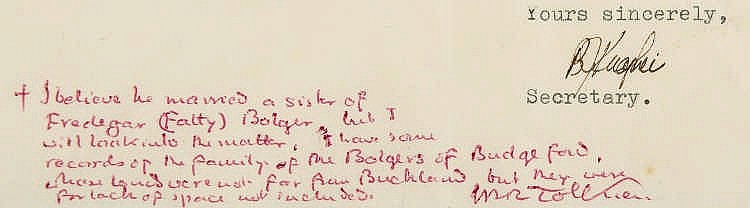 Yours sincerely,
Secretary.
† I believe he married a sister of
Fredegar (Fatty) Bolger, but I
will look into the matter. I have some
records of the family of the Bolgers of Budgeford,
whose lands were not far from Buckland but they were
for lack of space not included.
JRR Tolkien